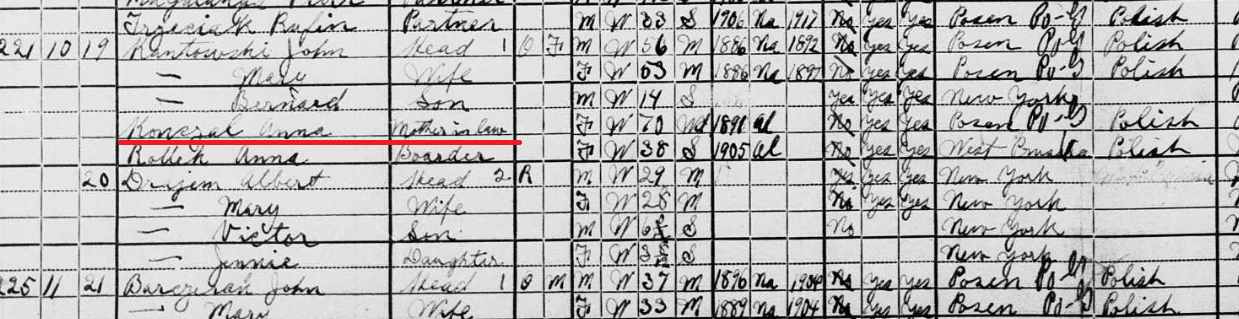 Trzeciak Rufin Partner M W 33 S 1906 Na 1917 No Yes Yes Posen Po-G Polish
221 10 19 Kantowski John Head 1 O F M W 56 M 1886 Na 1892 No Yes Yes Posen Po-G Polish
— Mary Wife F W 53 M 1886 Na 1892 No Yes Yes Posen Po-G Polish
— Bernard Son M W 14 S Yes Yes Yes New York
Konczal Anna Mother in law F W 70 Wd 1891 Al No Yes Yes Posen Po-G Polish
Rollek Anna Boarder F W 38 S 1905 Al No Yes Yes West Polish
20 Drajem Albert Head 2 R M W 29 M Yes Yes Yes New York
— Mary Wife F W 28 M No Yes Yes New York
— Victor Son M W S No New York
— Jennie Daughter F W S New York
225 11 21 John Head 1 O M M W 37 M 1896 Na 1904 No Yes Yes Posen Po-G Polish
— Mary Wife F W 33 M 1889 Na 1904 No Yes Yes Posen Po-G Polish